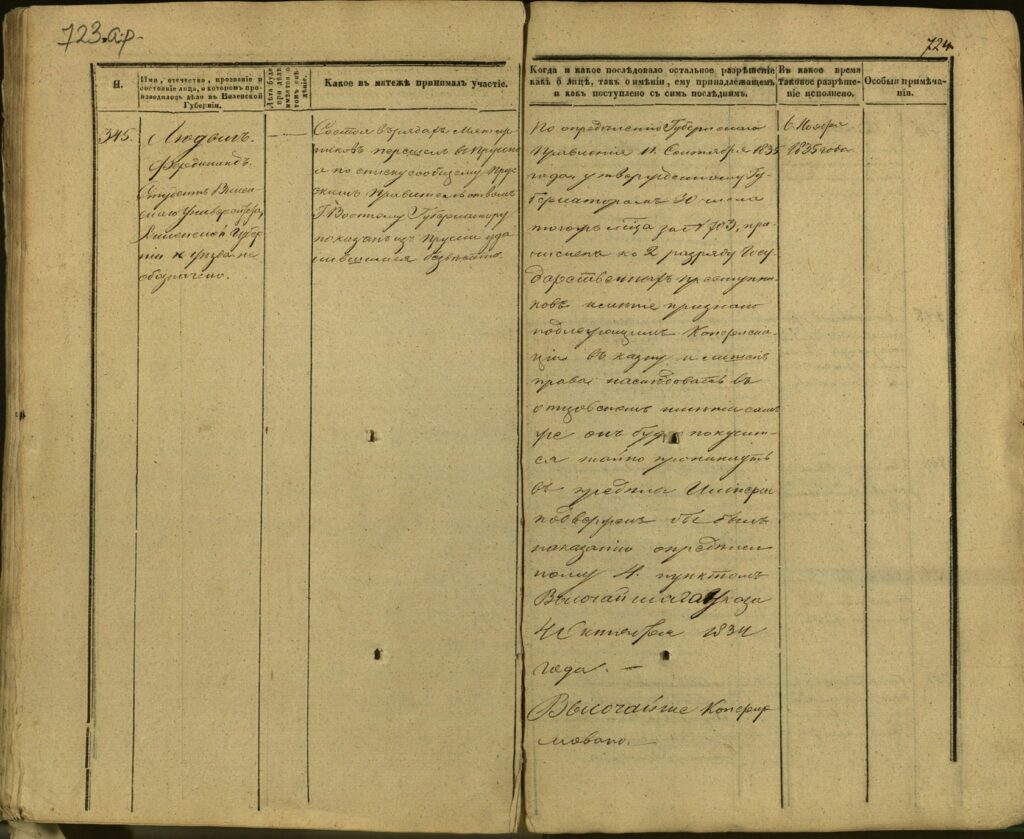 723.ap.
724.
Н.
Имя, отечество, прозваніе и
состояніе лица, о которомъ про-
изводилось дѣло въ Виленской
Губерніи.
Какое въ мятежѣ принималъ участіе.
Когда и какое послѣдовало остальное разрѣшеніе
какъ о лицѣ, такъ о имѣніи, ему принадлежащемъ
и какъ поступлено съ симъ послѣднимъ.
Въ какое время
таковое разрѣше-
ніе исполнено.
Особыя примѣча-
нія.
345.
Людвигъ.
Фердинандъ.
Студентъ Вилен-
скаго Университета,
Виленской Губер-
ніи
обозначено.
Состоя въ рядахъ Мятеж-
никовъ перешелъ въ Пруссію
а по списку Прус-
скимъ Правительствомъ
Г. Военному Губернатору
показанъ изъ Пруссіи уда-
лившимся
По опредѣленію Губернскаго
Правленія 11 Сентября 1835
года утвержденному Гу-
бернаторомъ 20 числа
тогожъ м-ца за № 1703, при-
численъ ко 2 разряду Госу-
дарственныхъ преступни-
ковъ имѣніе признано
подлежащимъ Конфиска-
ціи въ казну и лишенъ
права наслѣдовать въ
отцовскомъ имѣніи
онъ покусит-
ся тайно проникнуть
въ предѣлы Имперіи
подверженъ бы былъ
наказанію опредѣлен-
ному 4. пунктомъ
Высочайшаго указа
4 Октября 1834
года. —
Высочайше Конфир-
мовано.
6 Ноября
1835 года